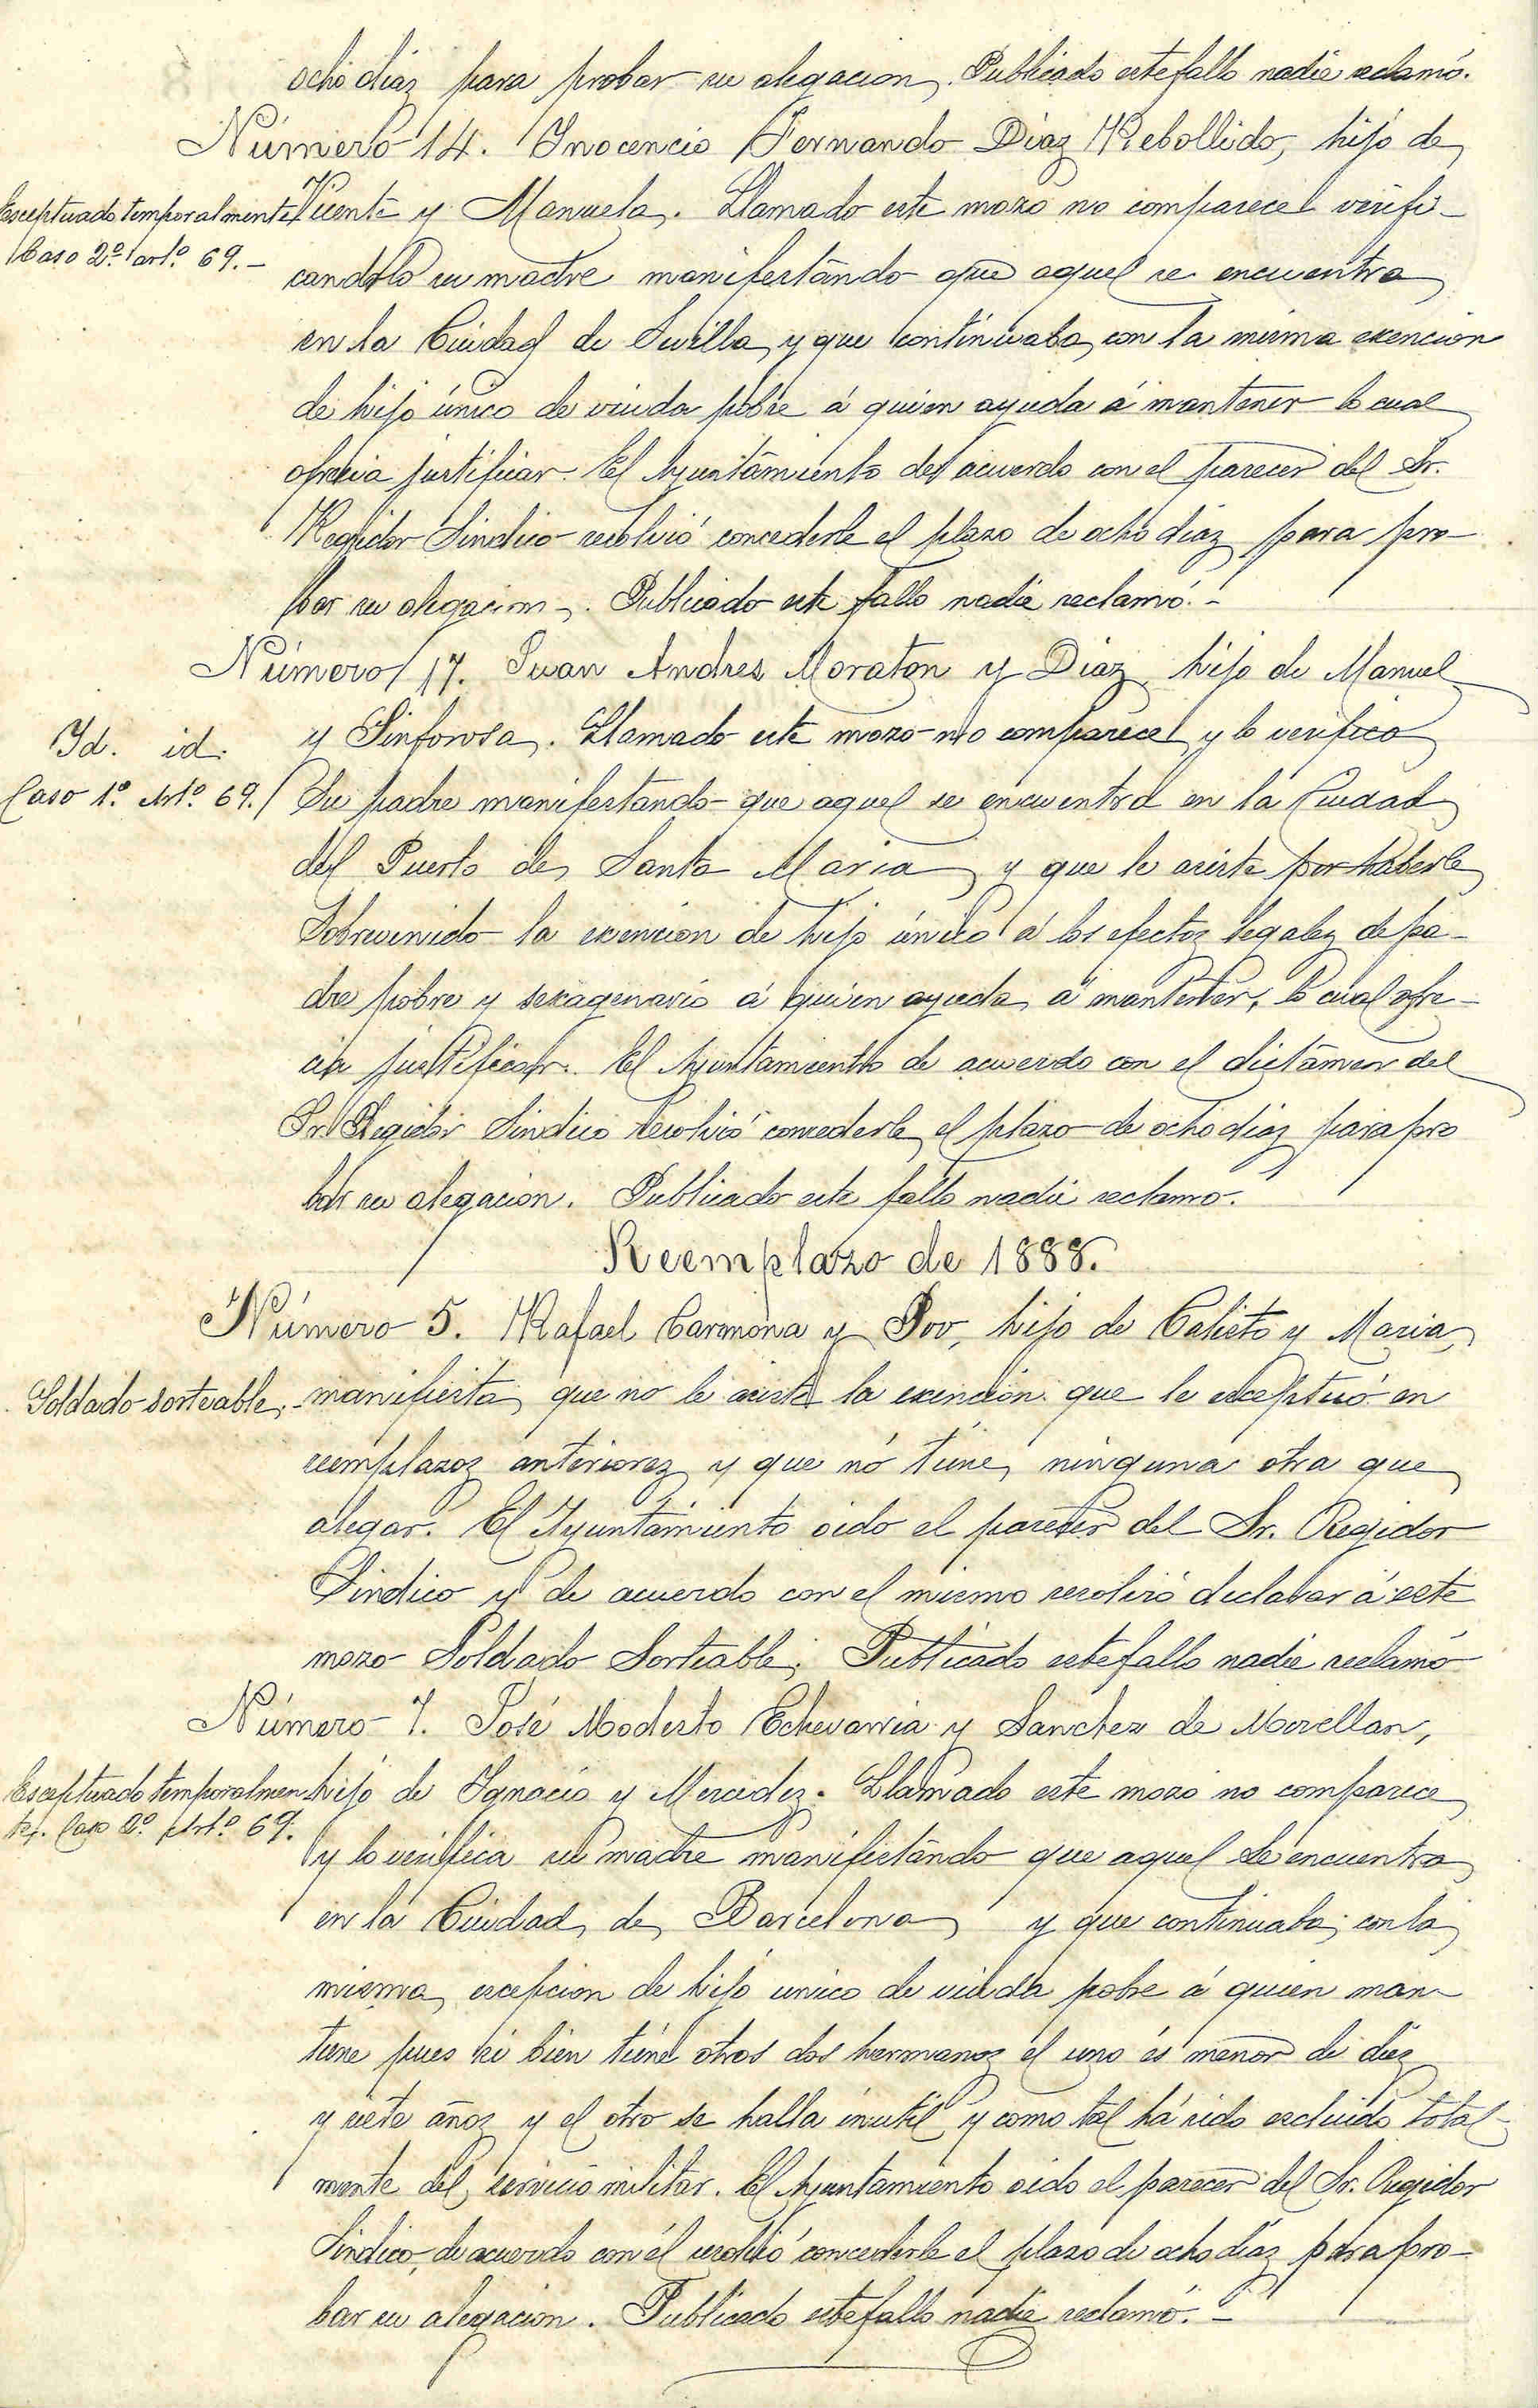 ocho diaz para probar su alegacion. Publicado este fallo nadie reclamó.
Número 14. Inocencio Fernando Diaz Rebollido, hijo de
Esceptuado temporalmente Caso 2º artº 69.-
Vicente y Manuela. Llamado este mozo no comparece verifi-
candolo su madre manifestando que aquel se encuentra
en la Ciudad de Sevilla y que continuaba con la misma exencion
de hijo único de viuda pobre á quien ayuda á mantener lo cual
ofrecia justificar. El Ayuntamiento de acuerdo con el parecer del Sr.
Regidor Sindico resolvió concederle el plazo de ocho diaz para pro-
bar su alegacion. Publicado este fallo nadie reclamó.-
Número 17. Juan Andres Moraton y Diaz hijo de Manuel
Id. id.
Caso 1º Artº 69.
y Sinforosa. Llamado este mozo no comparece y lo verifica
Su padre manifestando que aquel se encuentra en la Ciudad
del Puerto de Santa Maria y que le asiste por haberle
Sobrevenido la exencion de hijo único á los efectoz legalez de pa-
dre pobre y sexagenario á quien ayuda á mantener, lo cual ofre-
cia justificar. El Ayuntamiento de acuerdo con el dictámen del
Sr. Regidor Sindico resolvió concederle el plazo de ocho diaz para pro
bar su alegacion. Publicado este fallo nadie reclamo.
Reemplazo de 1888.
Número 5. Rafael Carmona y Pov, hijo de Calisto y Maria,
Soldado sorteable.-
manifiesta que no le asiste la exención que le esceptuó en
reemplazoz anteriorez y que nó tiene ninguna otra que
alegar. El Ayuntamiento oido el parecer del Sr. Regidor
Sindico y de acuerdo con el mismo resolvió declarar á este
mozo Soldado Sorteable. Publicado este fallo nadie reclamó
Número 7. José Modesto Echevarria y Sanchez de Movellan,
Esceptuado temporalmen
te. Caso 2º Artº 69.
hijo de Ignacio y Mercedez. Llamado este mozo no comparece
y lo verifica su madre manifestándo que aquel se encuentra
en la Ciudad de Barcelona y que continuaba con la
misma escepcion de hijo unico de viuda pobre á quien man-
tiene pues si bien tiene otros dos hermanoz el uno és menor de diez
y siete añoz y el otro se halla inutil y como tal há sido escluido total-
mente del servicio militar. El Ayuntamiento oido el parecer del Sr. Regidor
Sindico, de acuerdo con él resolvió concederle el plazo de ocho diaz para pro-
bar su alegacion. Publicado este fallo nadie reclamó.-